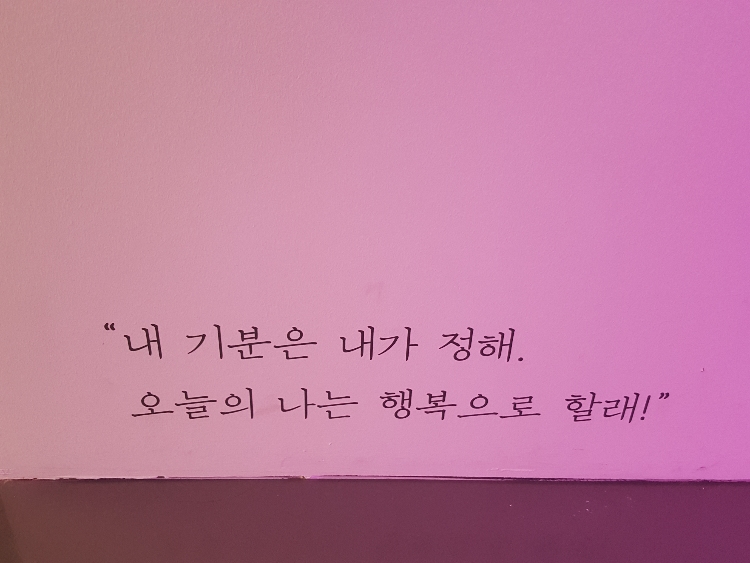 “내 기분은 내가 정해.
오늘의 나는 행복으로 할래!”